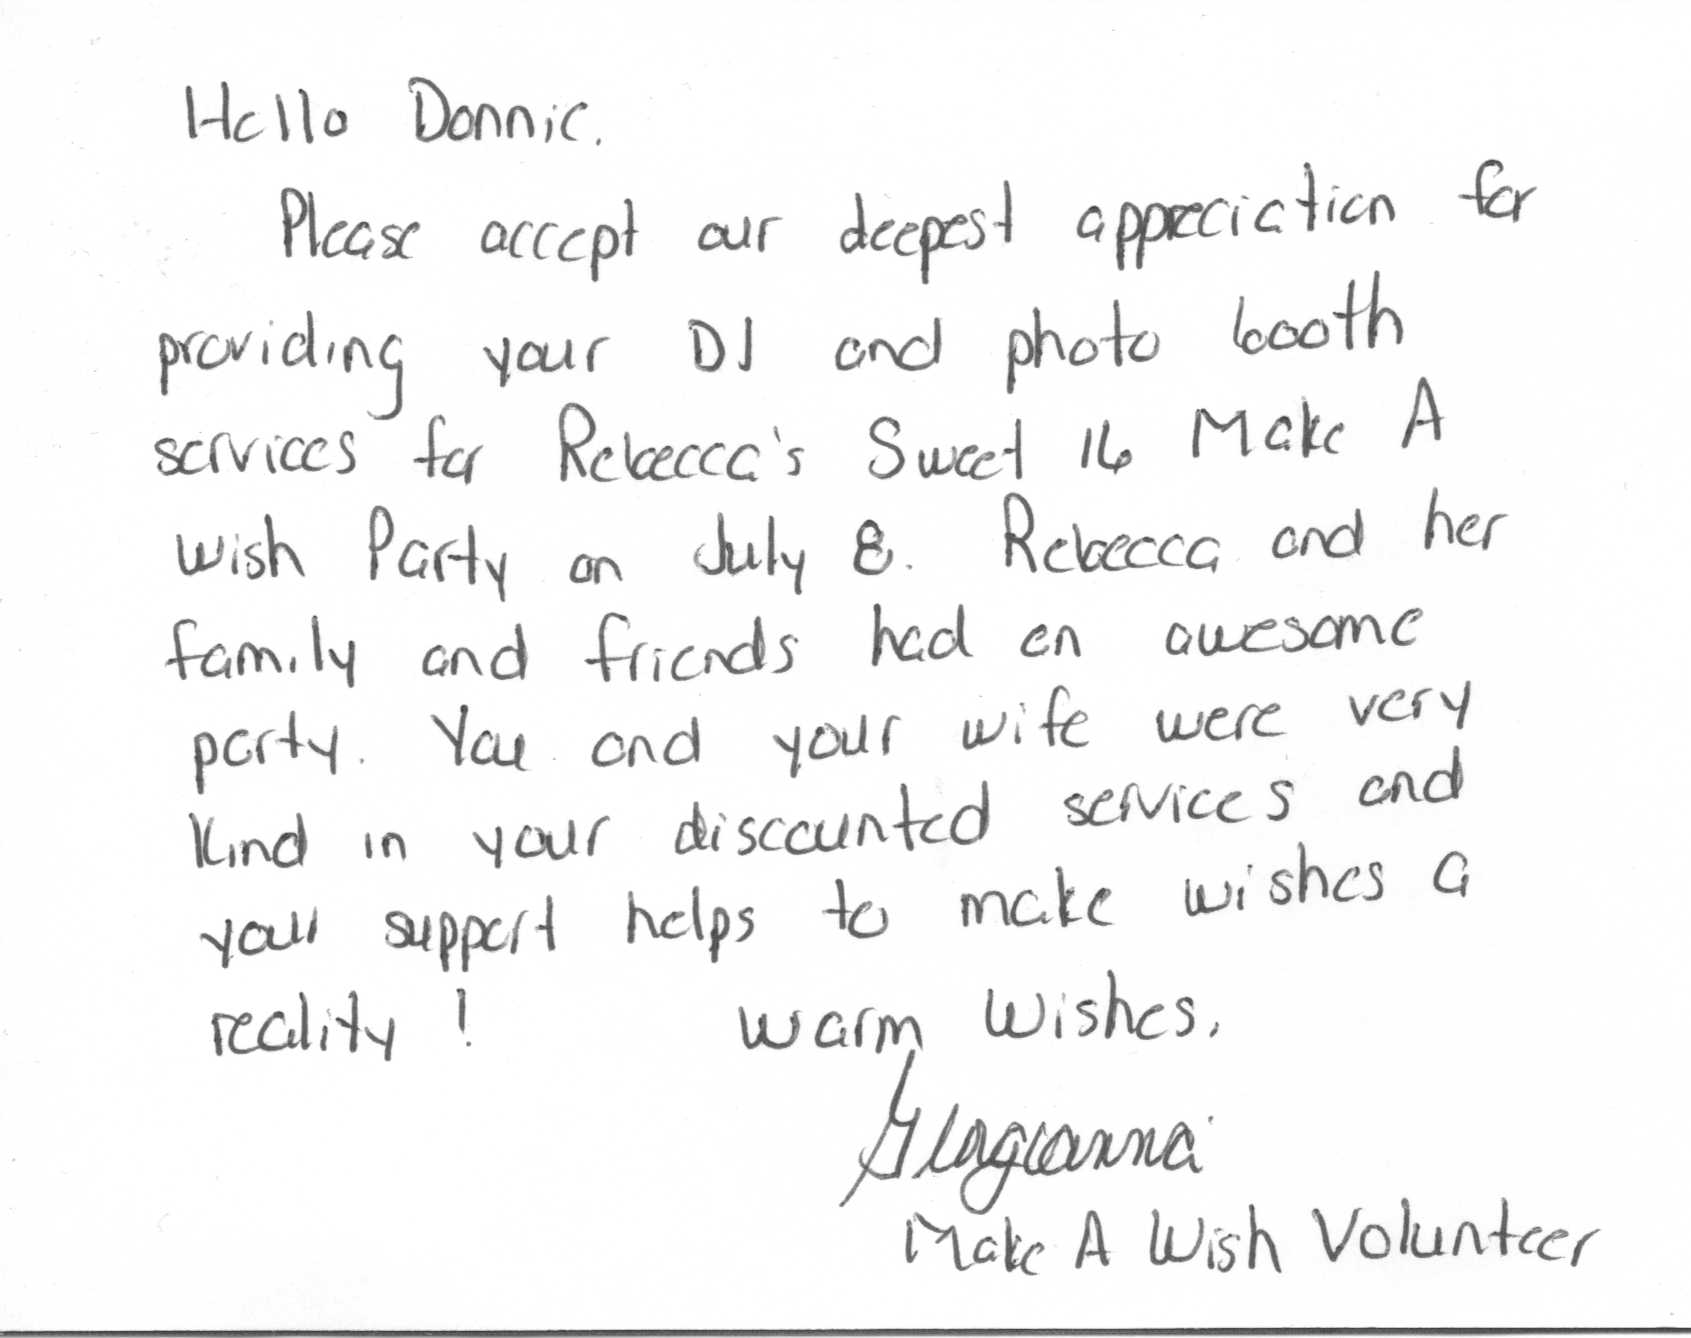 Hello Donnie,
Please accept our deepest appreciation for
providing your DJ and photo booth
services for Rebecca's Sweet 16 Make A
wish Party on July 8. Rebecca and her
family and friends had an awesome
party. You and your wife were very
kind in your discounted services and
your support helps to make wishes a
reality! warm wishes,
Make A Wish Volunteer